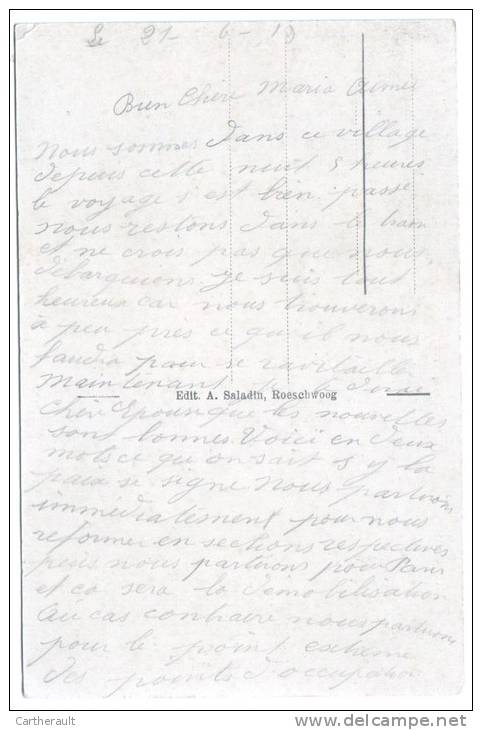 Le 21-6-19
Bien Chère Maria Aimée
Nous sommes dans ce village
depuis cette nuit 5 heures
le voyage s'est bien passé
nous restons dans le train
et ne crois pas que nous
débarquions je suis tout
heureux car nous trouverons
à peu près ce qu'il nous
faudra pour se ravitailler
Maintenant je te dirai
Edit. A. Saladin, Roeschwoog
chère Epouse que les nouvelles
sont bonnes Voici en deux
mots ce qu'on sait s y la
paix se signe nous partirons
immédiatement pour nous
reformer en sections respectives
puis nous partirons pour Paris
et ca sera la démobilisation
Au cas contraire nous partirons
pour le point extrême
des points d'occupation
Cartherault
www.delcampe.net